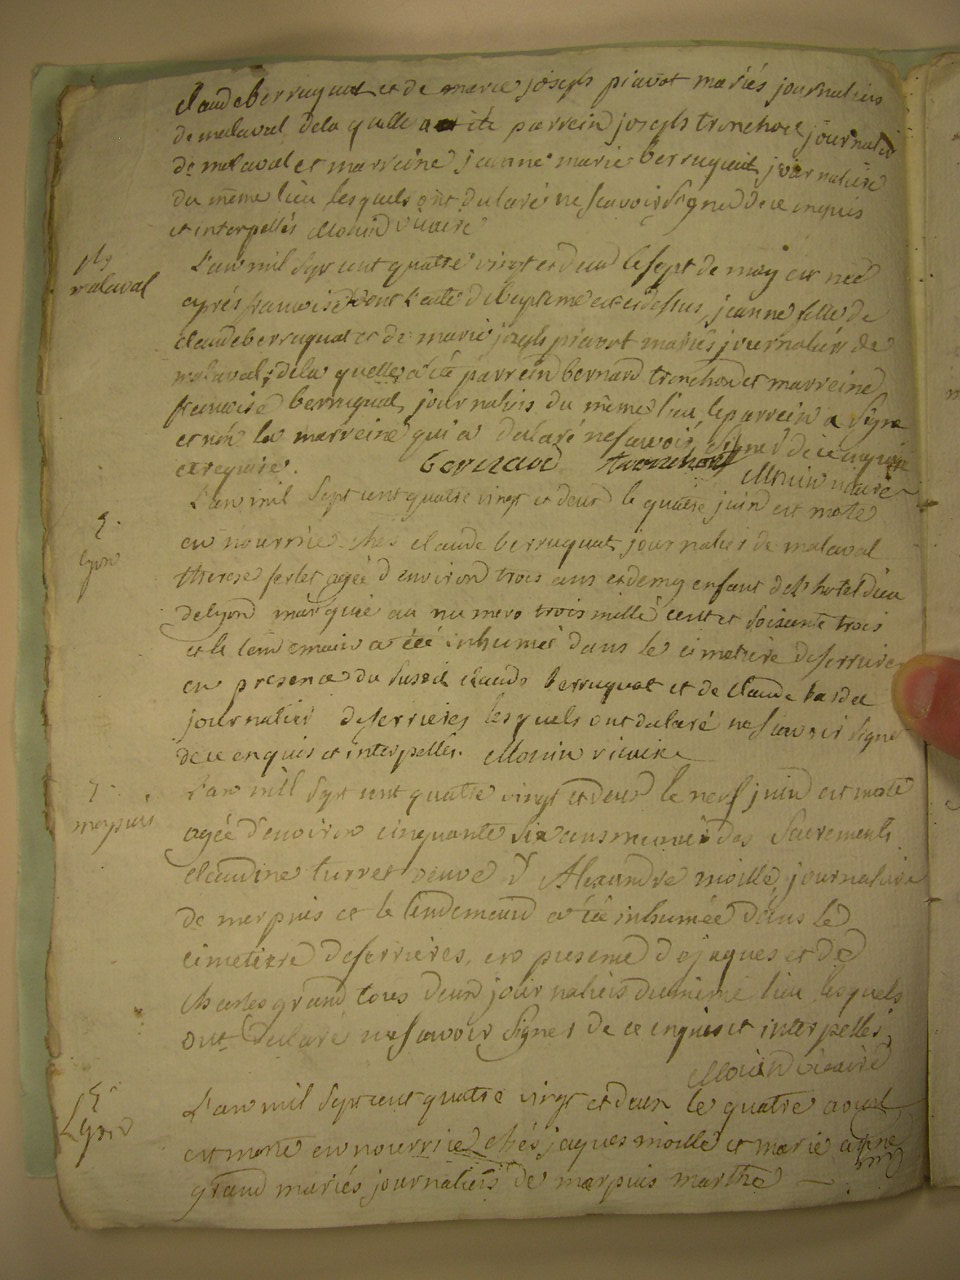 claude berruquat et de marie joseph piavot mariés journaliers
de malaval de la quelle a été parrein joseph tronchon journalier
de malaval et marreine jeanne marie berruquat journaliere
du même lieu lesquels ont dclaré ne scavoir signer de ce enquis
et interpellés Moüin vicaire
malaval
L'an mil sept cent quatre vingt et deux le sept de may est née
aprés francoise dont l'acte de bapteme est cidessus, jeanne fille de
claude berruquat et de marie joseph piavot mariés journaliers de
malaval; de la quelle a été parrein bernard tronchon et marreine
francoise berruquat, journaliers du même lieu, le parrein a signé
et non la marreine qui a dclaré ne scavoir signer de ce enquise
et requise. bernard tronchon Moüin vicaire
L'an mil sept cent quatre vingt et deux le quatre juin est morte
Lyon
en nourrice ches claude berruquat journalier de malaval
therese ferlet agée d'environ trois ans et demy enfant de l'hotel dieu
de lyon marquée au numero trois mille cent et soixante trois
et le lendemain a été inhumée dans le cimetiere de ferrieres
en presence du susdit claude berruquat et de claude bardet
journalier de ferrieres lesquels ont dclaré ne scavoir signer
de ce enquis et interpellés. Moüin vicaire
L'an mill sept cent quatre vingt et deux le neuf juin est morte
merpuis
agée d'environ cinquante six ans munie des sacrements
claudine turret veuve d'Alexandre moille, journaliere
de merpuis et le lendemain a été inhumée dans le
cimetiere de ferrières, en presence de jaques et de
charles grand tous deux journaliers du même lieu, lesquels
ont dclaré ne scavoir signer de ce enquis et interpellés,
Moüin vicaire
Lyon
L'an mil sept cent quatre vingt et deux le quatre aoust
est morte en nourrice chés jaques moille et marie
grand mariés journaliers de marpuis marthe